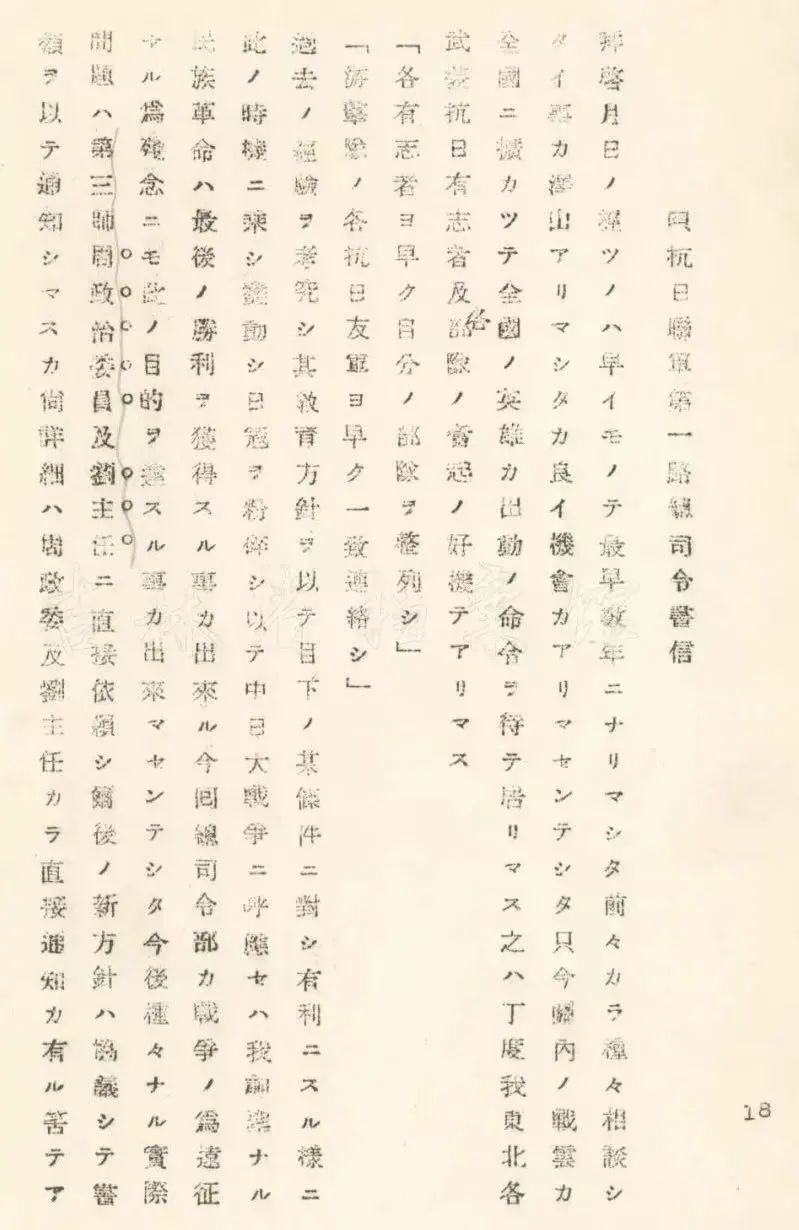 四抗日聯軍第一路總司令書信
拜啓月日ノ經ツノハ早イモノテ最早數年ニナリマシタ前々カラ種々相談シ
タイ事カ澤山アリマシタカ良イ機會カアリマセンテシタ只今關內ノ戰雲カ
全國ニ擴カツテ全國ノ英雄カ出動ノ命令ヲ待テ居リマス之ハ丁度我東北各
武裝抗日有志者及各部隊ノ奮起ノ好機テアリマス
「各有志者ヨ早ク自分ノ部隊ヲ整列シ」
「游擊隊ノ各抗日友軍ヨ早ク一致連絡シ」
過去ノ經驗ヲ考究シ其敎育方針ヲ以テ目下ノ某條件ニ對シ有利ニスル樣ニ
此ノ時機ニ乘シ蠢動シ日冦ヲ粉碎シ以テ中日大戰爭ニ呼應セハ我神聖ナル
民族革命ハ最後ノ勝利ヲ獲得スル事カ出來ル今囘總司令部カ戰爭ノ爲遠征
セル爲殘念ニモ此ノ目的ヲ達スル事カ出來マセンテシタ今後種々ナル實際
問題ハ第三師周政治委員及劉主任ニ直接依賴シ爾後ノ新方針ハ協議シテ書
類ヲ以テ通知シマスカ尙詳細ハ周政委及劉主任カラ直接通知カ有ル筈テア
18